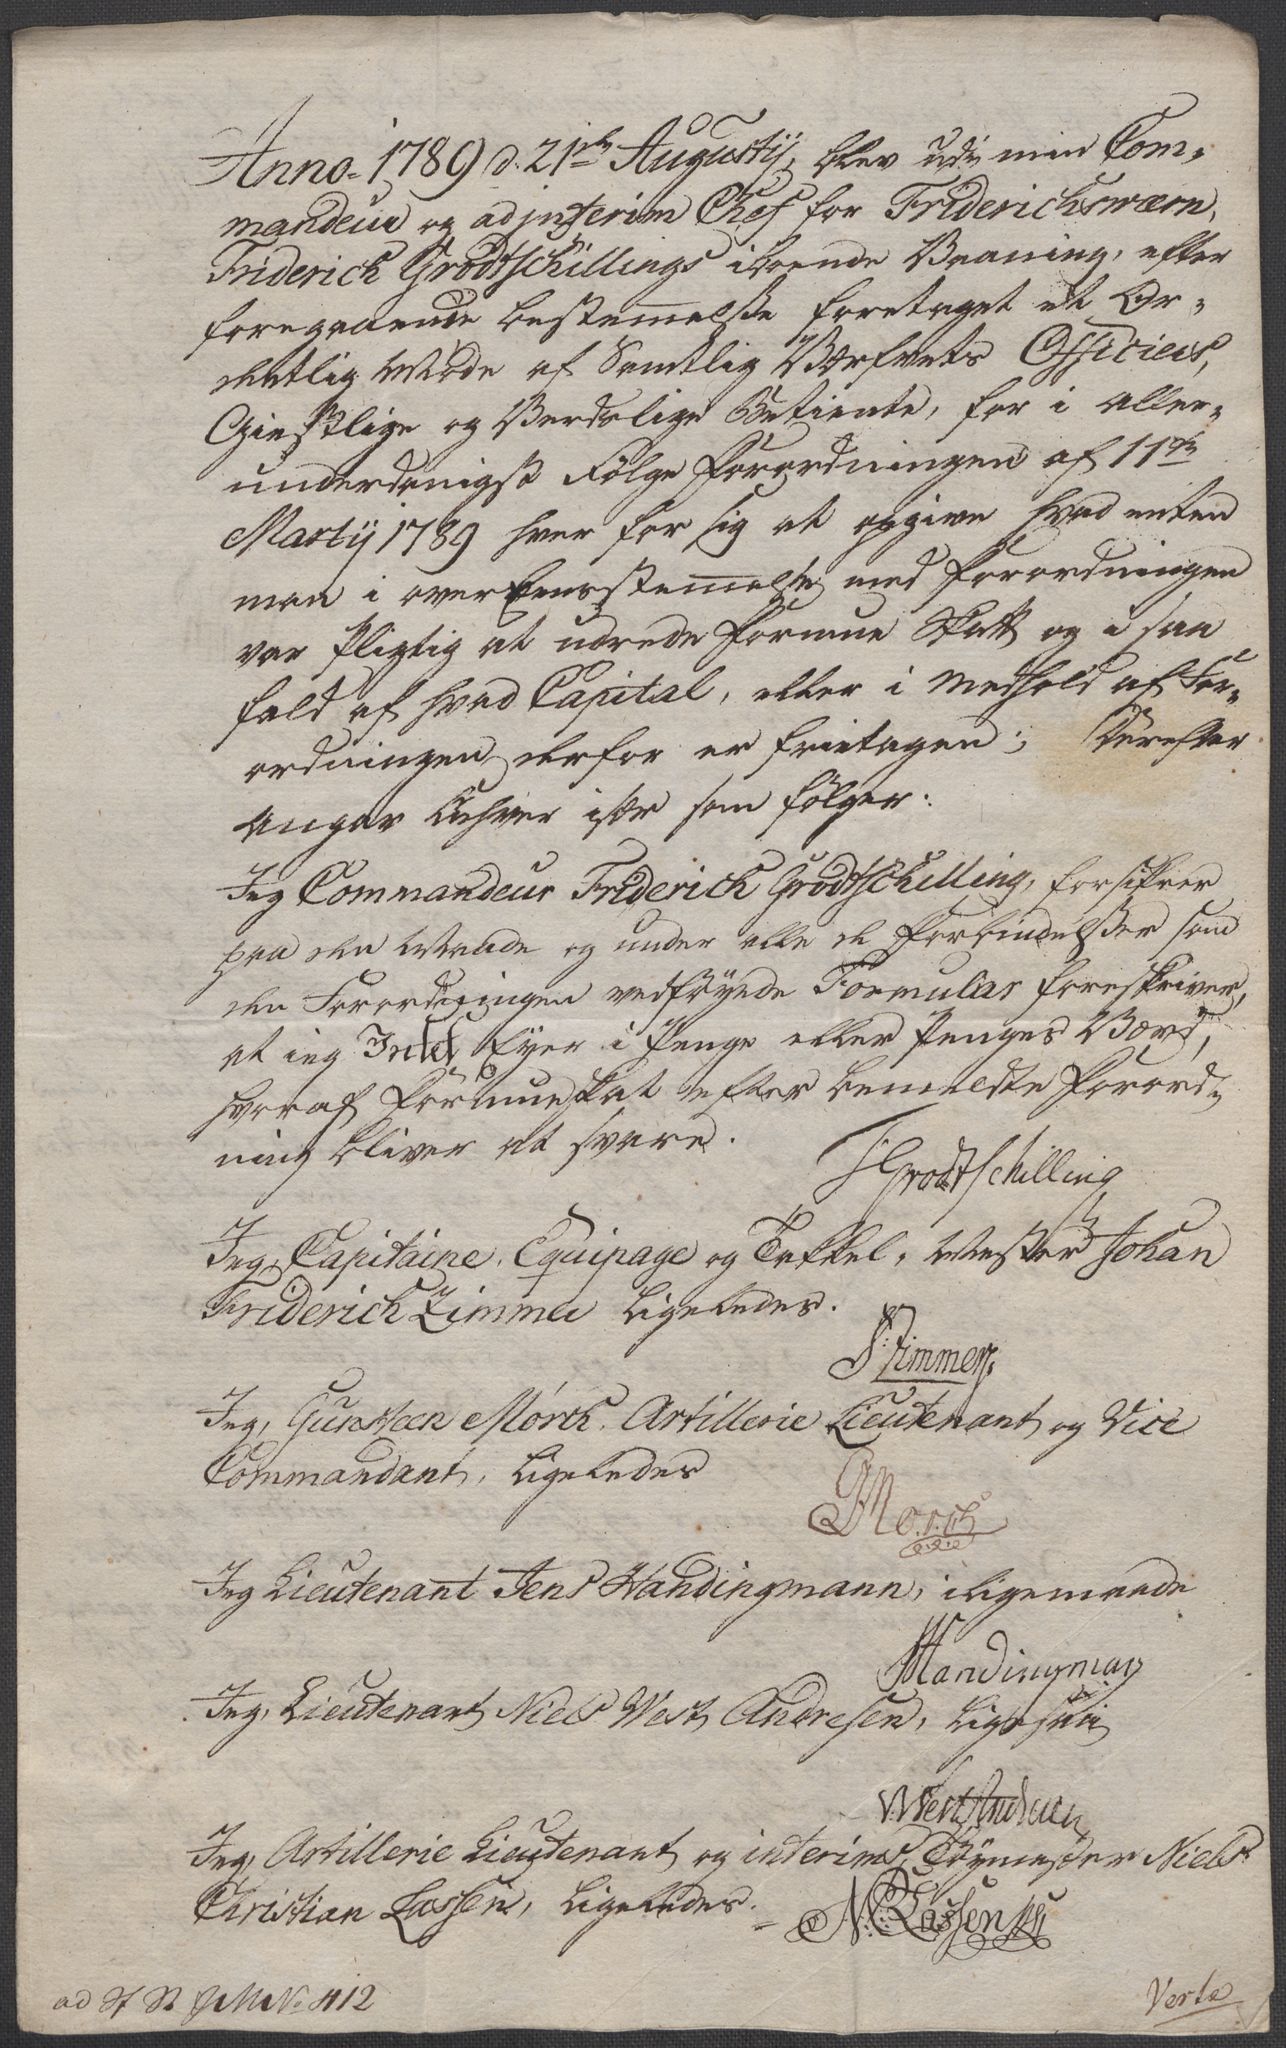 Anno. 1789 d. 21de Augustij, blev udi min Com-
mandeur og adjnterim Chef for Friderichswærn,
Friderich Grodtschillings iboende Vaaning, efter
foregaaende bestemmelse foretaget et Or-
dentlig Møde af Samtlig Værfvets Officiers,
Giestlige og Verdslige Betiente, for i aller-
underdanigst Følge Forordningen af 11te
Martij 1789 hver for sig at opgive hvad enten
man i overEensstemmelse med Forordningen
var pligtig at udrede Formue Skatt og i saa
fald af hvad Capital, eller i Medhold af For-
ordningen derfor er frietagen; Derefter
angav Enhver især som følger:
Jeg Commandeur Friderich Grodtschilling, forsikrer
paa den Maade og under alle de Forbindelser som
den Forordningen vedføyede Formular foreskriver,
at ieg Intet Eyer i Penge eller Penges Værd,
hvoraf Formueskat efter bemeldte Forord-
ning bliver at svare.
FGrodtschilling
Jeg, Capitaine, Equipage og Takkel-Mester Johan
Friderich Zimmer ligeledes.
F: Zimmer.
Jeg, Gunsteen Mørch, Artillerie Lieutenant og Vice
Commandant, ligeledes
GMørch
Jeg Lieutenant Jens Handingmann, i ligemaade
JHandingman
Jeg, Lieutenant Niels West Andresen, ligesaa
N West Andresen
Jeg, Artillerie Lieutenant og interims Tøymester Niels
Christian Lassen, ligeledes.
N:C:Lassen
No. 412
Verte